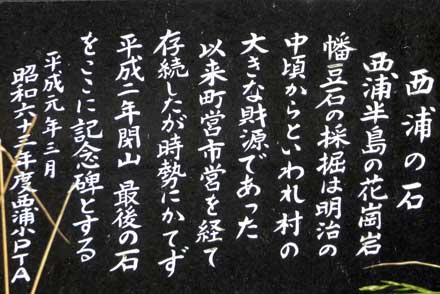 西浦の石
西浦半島の花崗岩
幡豆石の採掘は明治の
中頃からといわれ村の
大きな財源であった
以来町営市営を経て
存続したが時勢にかてず
平成二年閉山 最後の石
をここに記念碑とする
平成元年三月
昭和六十三年度西浦小PTA